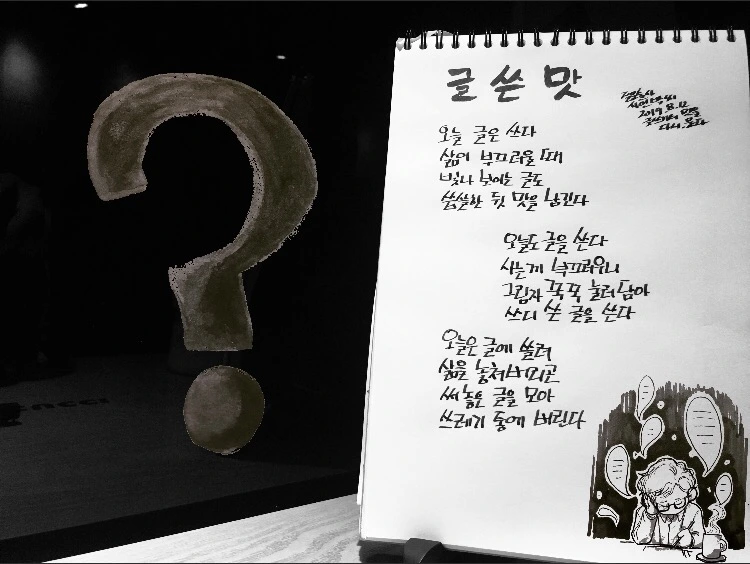 글 쓴 맛
2019. 8. 12
오늘 글은 쓰다
삶이 부끄러울 때
빛나 보이는 글도
씁쓸한 뒷 맛을 남긴다
오늘도 글을 쓴다
사는게 부끄러우니
그림자 꾹꾹 눌러 담아
쓰디 쓴 글을 쓴다
오늘은 글에 쓸려
삶을 놓쳐버리곤
써 놓은 글을 모아
쓰레기 통에 버린다